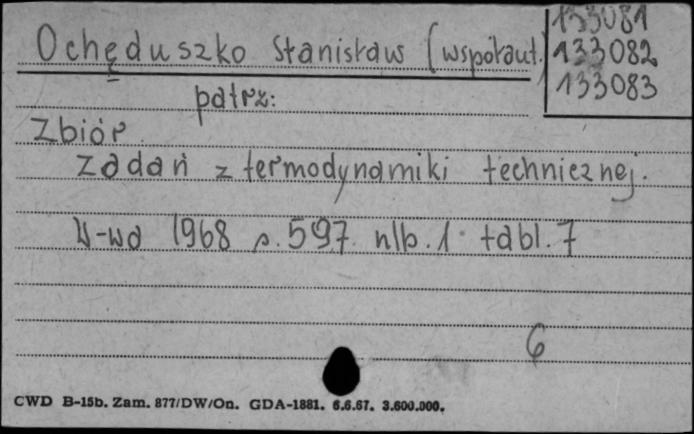 Ochęduszko Stanisław (współaut.)
133081
133082
133083
patrz:
Zbiór
zadań z termodynamiki technicznej.
W-wa 1968 s. 597 nlb. 1 tabl. 7
6
CWD B-15b. Zam. 877/DW/On. GDA-1881. 6.6.67. 3.600.000.